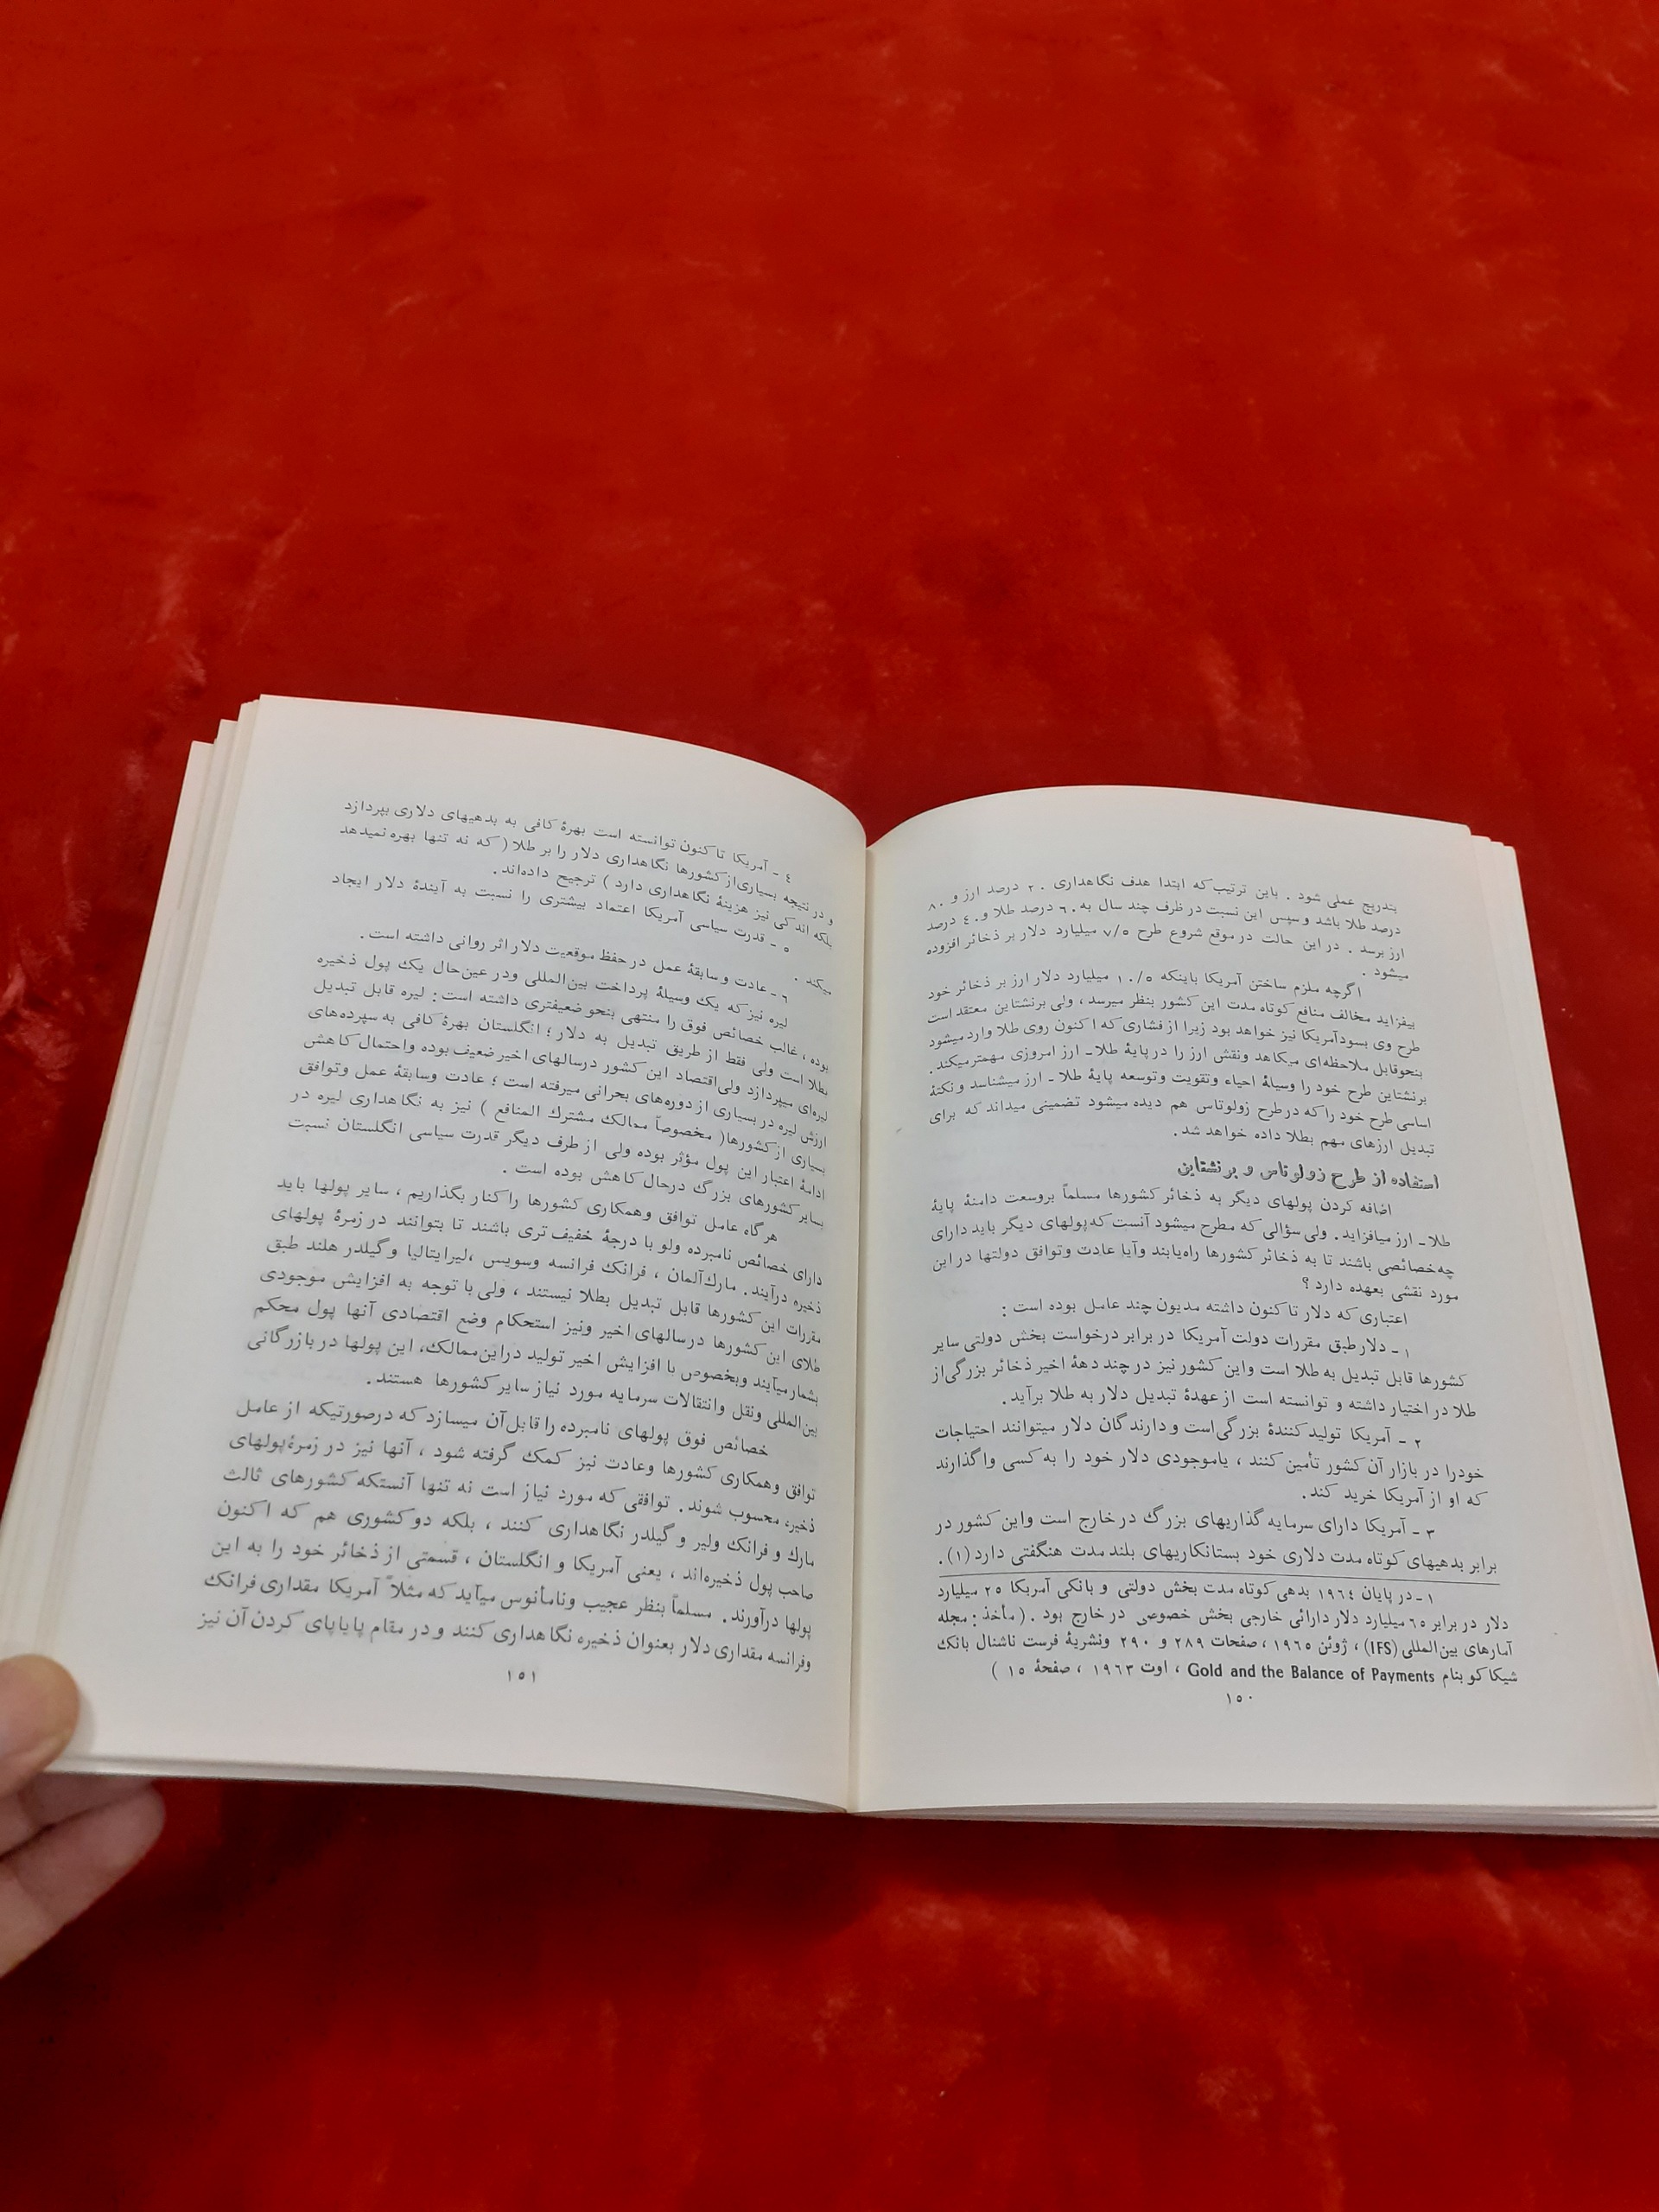 بتدریج عملی شود . باین ترتیب که ابتدا هدف نگاهداری ۲۰ درصد ارز و ۸۰
درصد طلا باشد و سپس این نسبت در ظرف چند سال به ۶۰ درصد طلا و ۴۰ درصد
ارز برسد . در این حالت در موقع شروع طرح ۷/۵ میلیارد دلار بر ذخائر افزوده
میشود .
اگرچه ملزم ساختن آمریکا باینکه ۱۰/۵ میلیارد دلار ارز بر ذخائر خود
بیفزاید مخالف منافع کوتاه مدت این کشور بنظر میرسد ، ولی برنشتاین معتقد است
طرح وی بسود آمریکا نیز خواهد بود زیرا از فشاری که اکنون روی طلا وارد میشود
بنحو قابل ملاحظه‌ای میکاهد ونقش ارز را در پایهٔ طلا ـ ارز امروزی مهمتر میکند .
برنشتاین طرح خود را وسیلهٔ احیاء وتقویت وتوسعه پایهٔ طلا ـ ارز میشناسد و نکتهٔ
اساسی طرح خود را که در طرح زولوتاس هم دیده میشود تضمینی میداند که برای
تبدیل ارزهای مهم بطلا داده خواهد شد .
استفاده از طرح زولوتاس و برنشتاین
اضافه کردن پولهای دیگر به ذخائر کشورها مسلماً بر وسعت دامنهٔ پایهٔ
طلا ـ ارز میافزاید . ولی سؤالی که مطرح میشود آنست که پولهای دیگر باید دارای
چه خصائصی باشند تا به ذخائر کشورها راه یابند وآیا عادت وتوافق دولتها در این
مورد نقشی بعهده دارد ؟
اعتباری که دلار تا کنون داشته مدیون چند عامل بوده است :
۱ ـ دلار طبق مقررات دولت آمریکا در برابر درخواست بخش دولتی سایر
کشورها قابل تبدیل به طلا است واین کشور نیز در چند دههٔ اخیر ذخائر بزرگی از
طلا در اختیار داشته و توانسته است از عهدهٔ تبدیل دلار به طلا برآید .
۲ ـ آمریکا تولید کنندهٔ بزرگی است و دارندگان دلار میتوانند احتیاجات
خودرا در بازار آن کشور تأمین کنند ، یاموجودی دلار خود را به کسی واگذارند
که او از آمریکا خرید کند .
۳ ـ آمریکا دارای سرمایه گذاریهای بزرگ در خارج است واین کشور در
برابر بدهیهای کوتاه مدت دلاری خود بستانکاریهای بلند مدت هنگفتی دارد (۱) .
۱ ـ در پایان ۱۹۶۴ بدهی کوتاه مدت بخش دولتی و بانکی آمریکا ۲۵ میلیارد
دلار در برابر ۶۵ میلیارد دلار دارائی خارجی بخش خصوصی در خارج بود . ( مأخذ : مجله
آمارهای بین‌المللی (IFS) ، ژوئن ۱۹۶۵ ، صفحات ۲۸۹ و ۲۹۰ ونشریهٔ فرست ناشنال بانک
شیکاکو بنام Gold and the Balance of Payments ، اوت ۱۹۶۳ ، صفحهٔ ۱۵ )
۱۵۰
۴ ـ آمریکا تا کنون توانسته است بهرهٔ کافی به بدهیهای دلاری بپردازد
و در نتیجه بسیاری از کشورها نگاهداری دلار را بر طلا ( که نه تنها بهره نمیدهد
بلکه اندکی نیز هزینهٔ نگاهداری دارد ) ترجیح داده‌اند .
۵ ـ قدرت سیاسی آمریکا اعتماد بیشتری را نسبت به آیندهٔ دلار ایجاد
میکند .
۶ ـ عادت و سابقهٔ عمل در حفظ موقعیت دلار اثر روانی داشته است .
لیره نیز که یک وسیلهٔ پرداخت بین‌المللی ودر عین حال یک پول ذخیره
بوده ، غالب خصائص فوق را منتهی بنحو ضعیفتری داشته است : لیره قابل تبدیل
بطلا است ولی فقط از طریق تبدیل به دلار ؛ انگلستان بهرهٔ کافی به سپرده‌های
لیره‌ای میپردازد ولی اقتصاد این کشور در سالهای اخیر ضعیف بوده واحتمال کاهش
ارزش لیره در بسیاری از دوره‌های بحرانی میرفته است ؛ عادت وسابقهٔ عمل وتوافق
بسیاری از کشورها ( مخصوصاً ممالک مشترک المنافع ) نیز به نگاهداری لیره در
ادامهٔ اعتبار این پول مؤثر بوده ولی از طرف دیگر قدرت سیاسی انگلستان نسبت
بسایر کشورهای بزرگ در حال کاهش بوده است .
هر گاه عامل توافق وهمکاری کشورها را کنار بگذاریم ، سایر پولها باید
دارای خصائص نامبرده ولو با درجهٔ خفیف تری باشند تا بتوانند در زمرهٔ پولهای
ذخیره درآیند . مارک آلمان ، فرانک فرانسه وسویس ، لیر ایتالیا و گیلدر هلند طبق
مقررات این کشورها قابل تبدیل بطلا نیستند ، ولی با توجه به افزایش موجودی
طلای این کشورها در سالهای اخیر ونیز استحکام وضع اقتصادی آنها پول محکم
بشمار میآیند وبخصوص با افزایش اخیر تولید دراین ممالک ، این پولها در بازرگانی
بین‌المللی ونقل وانتقالات سرمایه مورد نیاز سایر کشورها هستند .
خصائص فوق پولهای نامبرده را قابل آن میسازد که درصورتیکه از عامل
توافق وهمکاری کشورها وعادت نیز کمک گرفته شود ، آنها نیز در زمرهٔ پولهای
ذخیره محسوب شوند . توافقی که مورد نیاز است نه تنها آنستکه کشورهای ثالث
مارک و فرانک ولیر و گیلدر نگاهداری کنند ، بلکه دو کشوری هم که اکنون
صاحب پول ذخیره‌اند ، یعنی آمریکا و انگلستان ، قسمتی از ذخائر خود را به این
پولها درآورند . مسلماً بنظر عجیب ونامأنوس میآید که مثلاً آمریکا مقداری فرانک
وفرانسه مقداری دلار بعنوان ذخیره نگاهداری کنند و در مقام پایاپای کردن آن نیز
۱۵۱